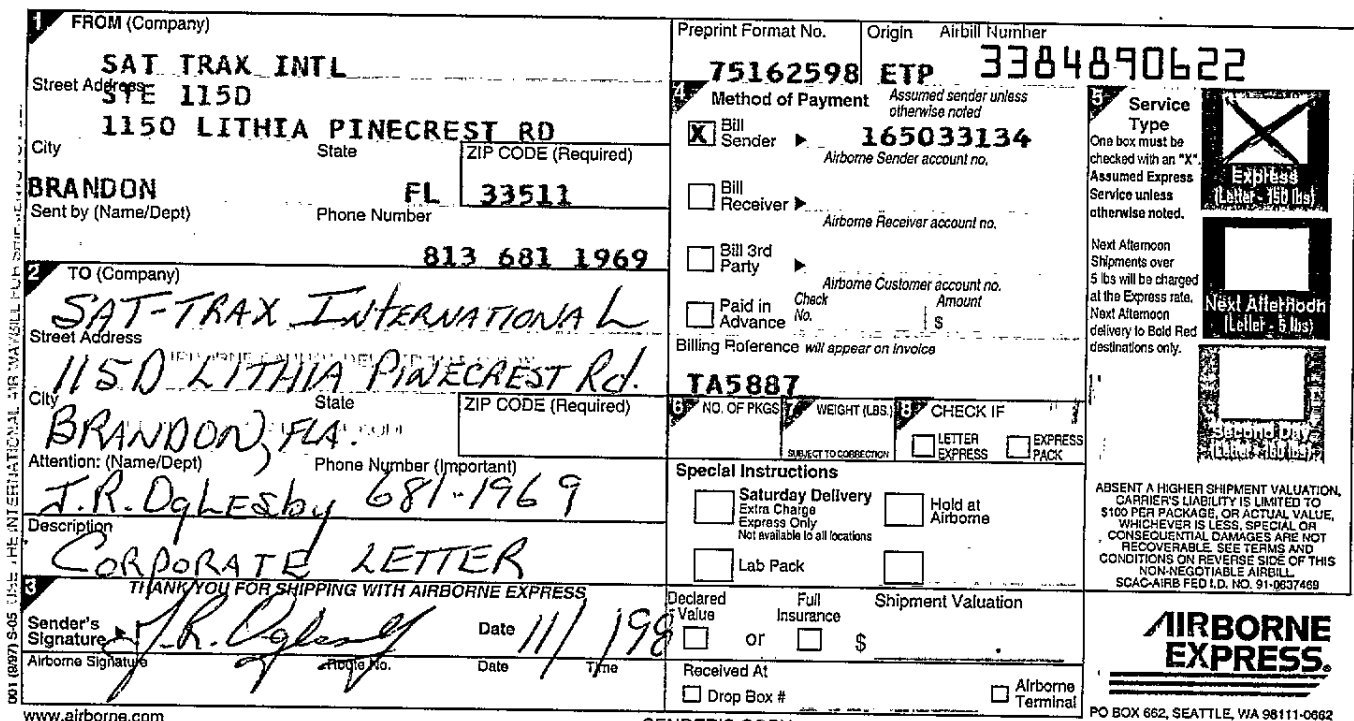 1 FROM (Company)
SAT TRAX INTL
Street Address
STE 115D
1150 LITHIA PINECREST RD
City State ZIP CODE (Required)
BRANDON FL 33511
Sent by (Name/Dept) Phone Number
813 681 1969
2 TO (Company)
SAT-TRAX INTERNATIONAL
Street Address
115D LITHIA PINECREST Rd.
City State ZIP CODE (Required)
BRANDON, FLA.
Attention: (Name/Dept) Phone Number (Important)
J.R. OgLEsby 681-1969
Description
CORPORATE LETTER
3 THANK YOU FOR SHIPPING WITH AIRBORNE EXPRESS
Sender's Signature J.R. Oglesby Date 11/198
Airborne Signature Route No. Date Time
www.airborne.com
Preprint Format No. Origin Airbill Number
75162598 ETP 3384890622
4 Method of Payment Assumed sender unless otherwise noted
X Bill Sender 165033134
Airborne Sender account no.
Bill Receiver
Airborne Receiver account no.
Bill 3rd Party
Airborne Customer account no.
Paid in Advance Check No. Amount $
Billing Reference will appear on invoice
TA5887
6 NO. OF PKGS 7 WEIGHT (LBS.) 8 CHECK IF
SUBJECT TO CORRECTION LETTER EXPRESS EXPRESS PACK
Special Instructions
Saturday Delivery Hold at Airborne
Extra Charge
Express Only
Not available to all locations
Lab Pack
Declared Value or Full Insurance Shipment Valuation
$
Received At
Drop Box # Airborne Terminal
SENDER'S COPY
5 Service Type
One box must be
checked with an "X".
Assumed Express
Service unless
otherwise noted.
Next Afternoon
Shipments over
5 lbs will be charged
at the Express rate.
Next Afternoon
delivery to Bold Red
destinations only.
X
Express
(Letter - 150 lbs)
Next Afternoon
(Letter - 5 lbs)
Second Day
ABSENT A HIGHER SHIPMENT VALUATION,
CARRIER'S LIABILITY IS LIMITED TO
$100 PER PACKAGE, OR ACTUAL VALUE,
WHICHEVER IS LESS, SPECIAL OR
CONSEQUENTIAL DAMAGES ARE NOT
RECOVERABLE. SEE TERMS AND
CONDITIONS ON REVERSE SIDE OF THIS
NON-NEGOTIABLE AIRBILL.
SCAC-AIRB FED I.D. NO. 91-0637469
AIRBORNE
EXPRESS®
PO BOX 662, SEATTLE, WA 98111-0662
001 (8/97) S-05